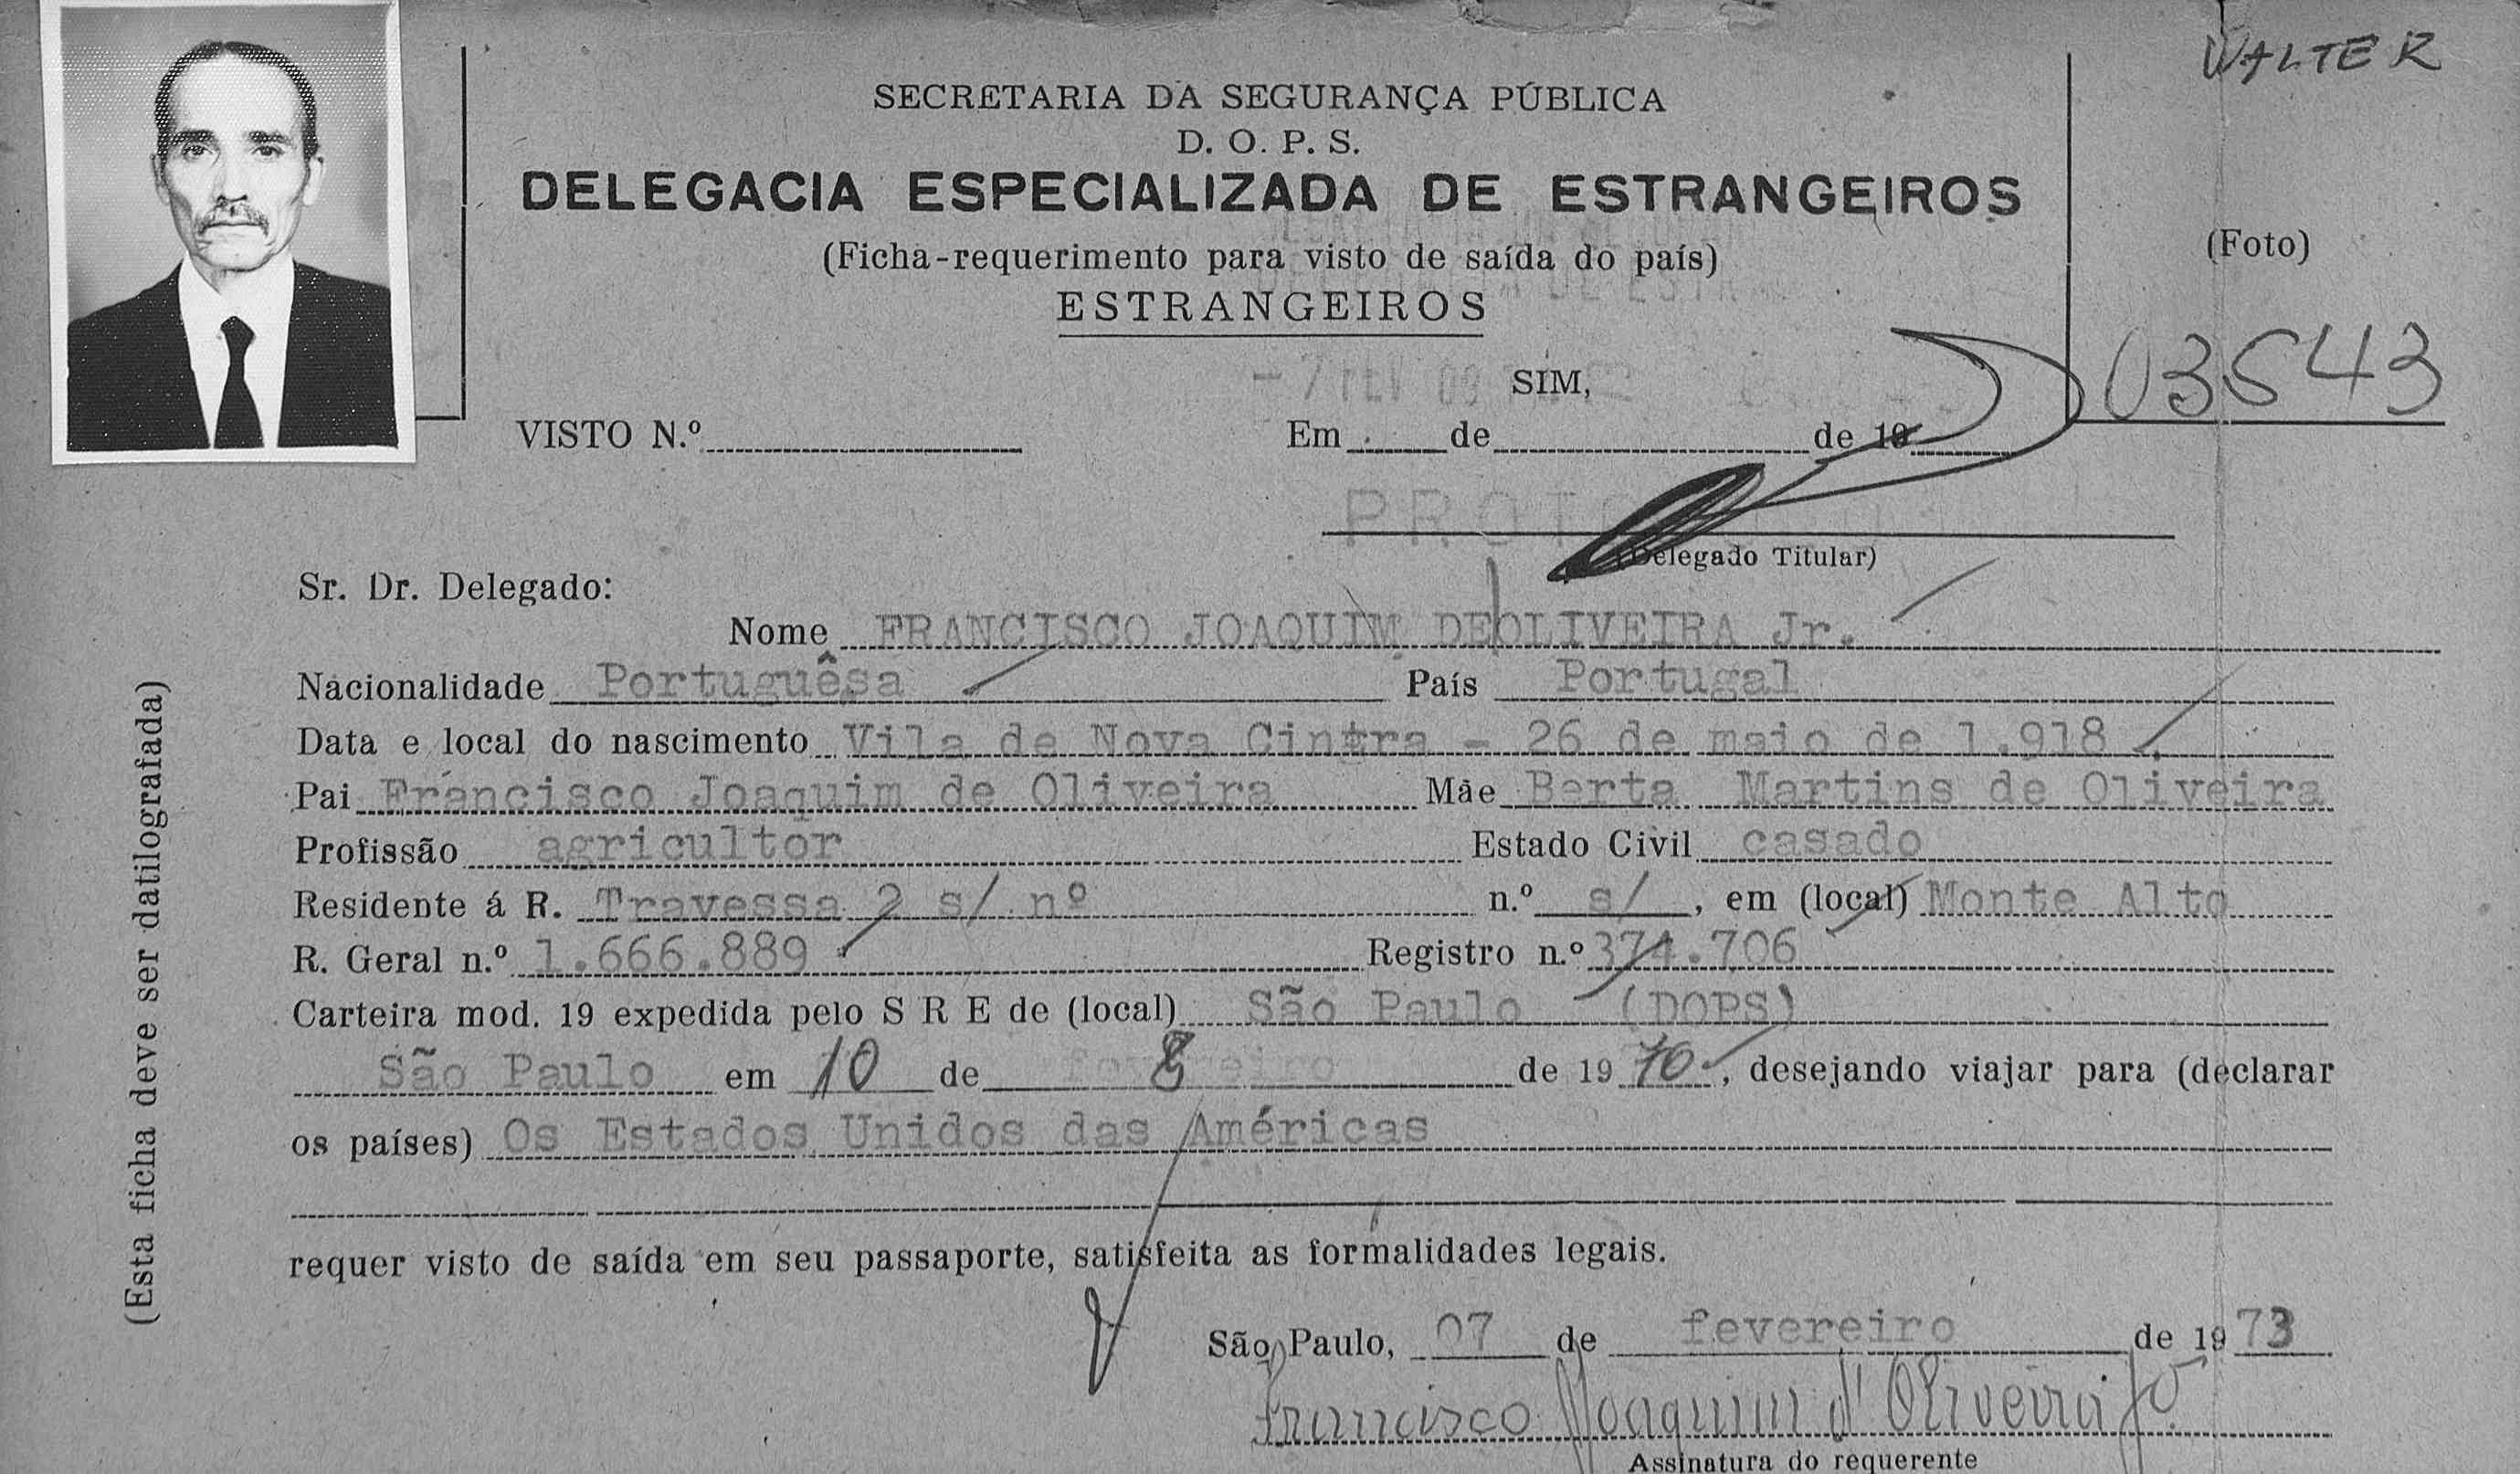 WALTER
SECRETARIA DA SEGURANÇA PÚBLICA
D. O. P. S.
DELEGACIA ESPECIALIZADA DE ESTRANGEIROS
(Ficha-requerimento para visto de saída do país)
(Foto)
ESTRANGEIROS
03543
SIM,
VISTO N.º Em de de 19
PROTO
(Delegado Titular)
Sr. Dr. Delegado:
Nome FRANCISCO JOAQUIM DE OLIVEIRA Jr.
Nacionalidade Portuguêsa País Portugal
Data e local do nascimento Vila de Nova Cintra - 26 de maio de 1.918
Pai Francisco Joaquim de Oliveira Mãe Berta Martins de Oliveira
Profissão agricultor Estado Civil casado
Residente á R. Travessa 2 s/ nº n.º s/ , em (local) Monte Alto
R. Geral n.º 1.666.889 Registro n.º 374.706
Carteira mod. 19 expedida pelo S R E de (local) São Paulo (DOPS)
São Paulo em 10 de 8 de 19 70, desejando viajar para (declarar
os países) Os Estados Unidos das Américas
requer visto de saída em seu passaporte, satisfeita as formalidades legais.
São Paulo, 07 de fevereiro de 19 73
Francisco Joaquim d'Oliveira Jº
Assinatura do requerente
(Esta ficha deve ser datilografada)